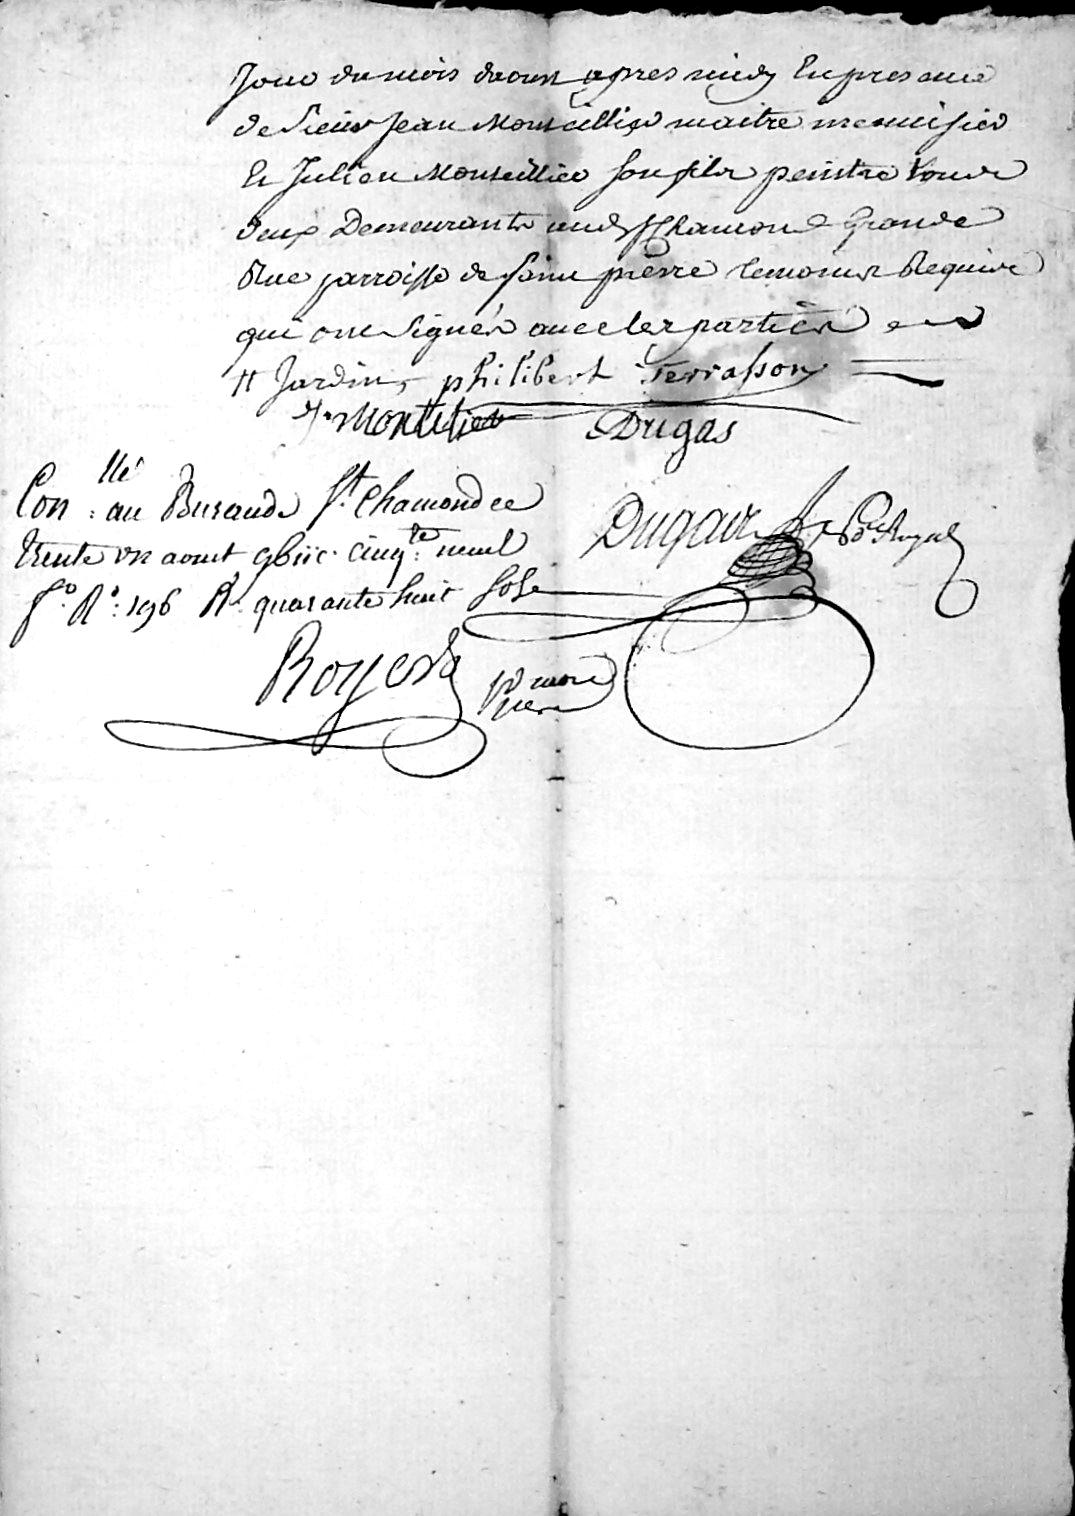 Jour du mois daoust apres midy En presence
de Sieurs Jean Monteillier maitre menuisier
Et Julien Monteillier son fils peintre tous
deux Demeurants aud St Chamond Grande
Rue parroisse de Saint pierre temoins Requis
qui ont Signés avec les parties
Jardin philibert Terrasson
Montelier Dugas
Con.llé au Bureau de St. Chamond ce
trente un aoust gbiic. cinq.te neuf
f.o R.o: 196 R. quarante huit sols
Dugas Royal
Royer